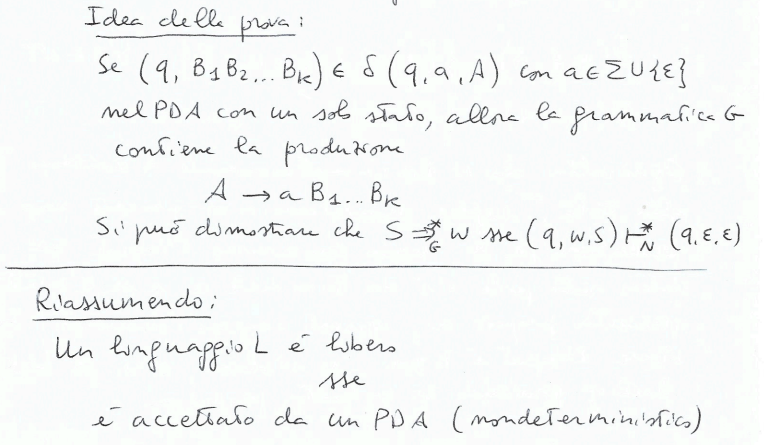 Idea della prova:
Se (q, B1B2...Bk) ∈ δ (q, a, A) con a ∈ Σ ∪ {ε}
nel PDA con un solo stato, allora la grammatica G
contiene la produzione
A → a B1...Bk
Si può dimostrare che S ⇒*G w sse (q, w, S) ⊢*N (q, ε, ε)
Riassumendo:
Un linguaggio L è libero
sse
è accettato da un PDA (nondeterministico)